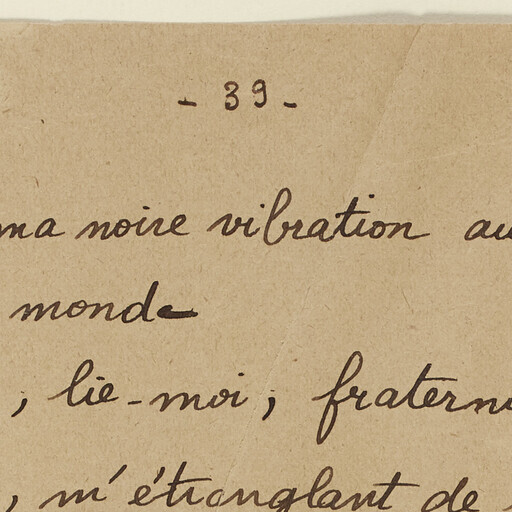 - 39 -
ma noire vibration au
monde
, lie-moi, fratern
, m'étranglant de